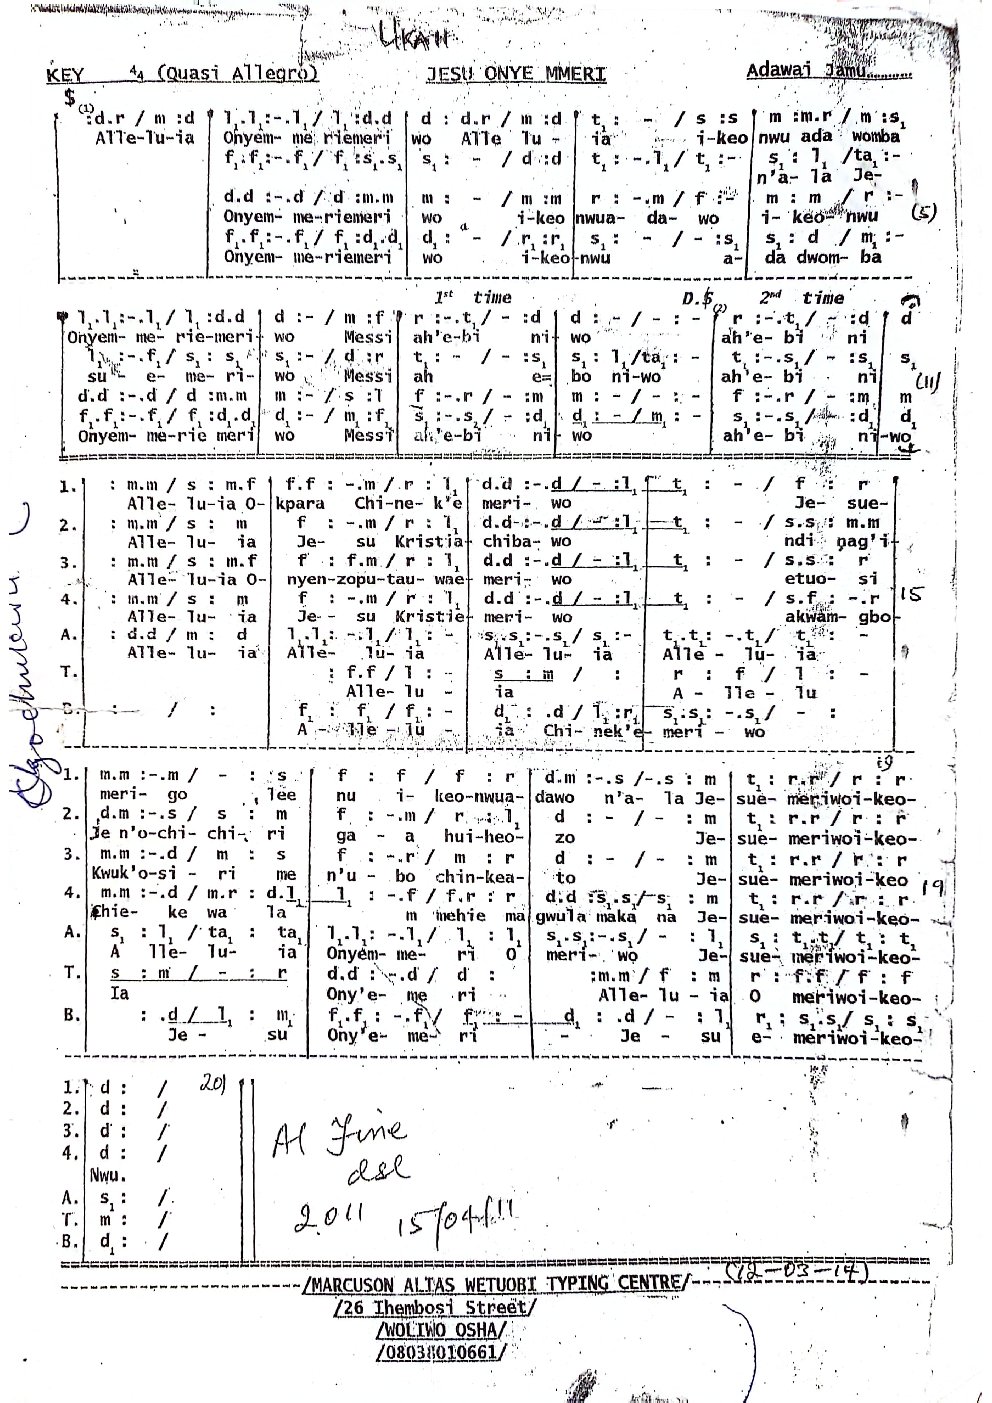 UKA 11
KEY 4/4 (Quasi Allegro) JESU ONYE MMERI Adawai Jamu..........
$
(1) :d.r / m :d | l₁.l₁:-.l₁/ l₁:d.d | d : d.r / m :d | t₁ : - / s :s | m :m.r / m :s₁
Alle-lu-ia | Onyem- me riemeri | wo Alle lu - | ia i-keo | nwu ada womba
f₁.f₁:-.f₁/ f₁:s₁.s₁ | s₁ : - / d :d | t₁ : -.l₁/ t₁ :- | s₁ : l₁ /ta₁ :-
n'a- la Je-
d.d :-.d / d :m.m | m : - / m :m | r : -.m / f :- | m : m / r :-
Onyem- me-riemeri | wo i-keo | nwua- da- wo | i- keo- nwu (5)
f₁.f₁:-.f₁/ f₁:d₁.d₁ | d₁ : - / r₁ :r₁ | s₁ : - / - :s₁ | s₁ : d / m₁ :-
Onyem- me-riemeri | wo i-keo- | nwu a- | da dwom- ba
1st time D.$ (2) 2nd time
l₁.l₁:-.l₁/ l₁ :d.d | d :- / m :f | r :-.t₁/ - :d | d : - / - : - | r :-.t₁/ - :d | d
Onyem- me- rie-meri- | wo Messi | ah'e-bi ni- | wo | ah'e- bi ni
l₁ :-.f₁/ s₁ : s₁ | s₁ :- / d :r | t₁ : - / - :s₁ | s₁ : l₁/ta₁ : - | t₁ :-.s₁/ - :s₁ | s₁
su - e- me- ri- | wo Messi | ah e= | bo ni-wo | ah'e- bi ni (11)
d.d :-.d / d :m.m | m :- / s :l | f :-.r / - :m | m : - / - : - | f :-.r / - :m | m
f₁.f₁:-.f₁/ f₁:d₁.d₁ | d₁ :- / m₁:f₁ | s₁ :-.s₁/ - :d₁ | d₁ : - / m₁ : - | s₁ :-.s₁/ - :d₁ | d₁
Onyem- me-rie meri | wo Messi | ah'e-bi ni- | wo | ah'e- bi ni-wo
1. : m.m / s : m.f | f.f : -.m / r : l₁ | d.d :-.d / - :l₁ | t₁ : - / f : r
Alle- lu-ia O- | kpara Chi-ne- k'e | meri- wo | Je- sue-
2. : m.m / s : m | f : -.m / r : l₁ | d.d :-.d / - :l₁ | t₁ : - / s.s : m.m
Alle- lu- ia | Je- su Kristia- | chiba- wo | ndi nag'i-
3. : m.m / s : m.f | f : f.m / r : l₁ | d.d :-.d / - :l₁ | t₁ : - / s.s : r
Alle- lu-ia O- | nyen-zopu-tau- wae- | meri- wo | etuo- si
4. : m.m / s : m | f : -.m / r : l₁ | d.d :-.d / - :l₁ | t₁ : - / s.f : -.r 15
Alle- lu- ia | Je- su Kristie- | meri- wo | akwam- gbo-
A. : d.d / m : d | l₁.l₁: -.l₁/ l₁ : - | s₁.s₁:-.s₁/ s₁ :- | t₁.t₁: -.t₁/ t₁ : -
Alle- lu- ia | Alle- lu- ia | Alle- lu- ia | Alle - lu- ia
T. : f.f / l : - | s : m / : | r : f / l : -
Alle- lu - | ia | A - lle - lu
B. : / : | f₁ : f₁ / f₁ : - | d₁ : .d / l₁:r₁ | s₁.s₁: -.s₁/ - :
A - lle - lu - | ia Chi- nek'e- | meri - wo
19
1. m.m :-.m / - : s | f : f / f : r | d.m :-.s /-.s : m | t₁ : r.r / r : r
meri- go lee | nu i- keo-nwua- | dawo n'a- la Je- | sue- meriwoi-keo-
2. d.m :-.s / s : m | f : -.m / r : l₁ | d : - / - : m | t₁ : r.r / r : r
Je n'o-chi- chi- ri | ga - a hui-heo- | zo Je- | sue- meriwoi-keo-
3. m.m :-.d / m : s | f : -.r / m : r | d : - / - : m | t₁ : r.r / r : r
Kwuk'o-si - ri me | n'u - bo chin-kea- | to Je- | sue- meriwoi-keo
4. m.m :-.d / m.r : d.l₁ | l₁ : -.f / f.r : r | d.d :s₁.s₁/ s₁ : m | t₁ : r.r / r : r 19
Chie- ke wa la | m mehie ma | gwula maka na Je- | sue- meriwoi-keo-
A. s₁ : l₁ / ta₁ : ta₁ | l₁.l₁: -.l₁/ l₁ : l₁ | s₁.s₁:-.s₁/ - : l₁ | s₁ : t₁.t₁/ t₁ : t₁
A lle- lu- ia | Onyem- me- ri O | meri- wo Je- | sue- meriwoi-keo-
T. s : m / - : r | d.d : -.d / d : | :m.m / f : m | r : f.f / f : f
Ia | Ony'e- me ri | Alle- lu - ia | O meriwoi-keo-
B. : .d / l₁ : m₁ | f₁.f₁ : -.f₁/ f₁ : - | d₁ : .d / - : l₁ | r₁ : s₁.s₁/ s₁ : s₁
Je - su | Ony'e- me- ri | - Je - su | e- meriwoi-keo-
1. d : / 20)
2. d : /
3. d : /
4. d : /
Nwu.
A. s₁ : /
T. m : /
B. d₁ : /
Al Fine
dsl
2011 15/04/11
(12-03-14)
/MARCUSON ALIAS WETUOBI TYPING CENTRE/
/26 Ihembosi Street/
/WOLIWO OSHA/
/08038010661/